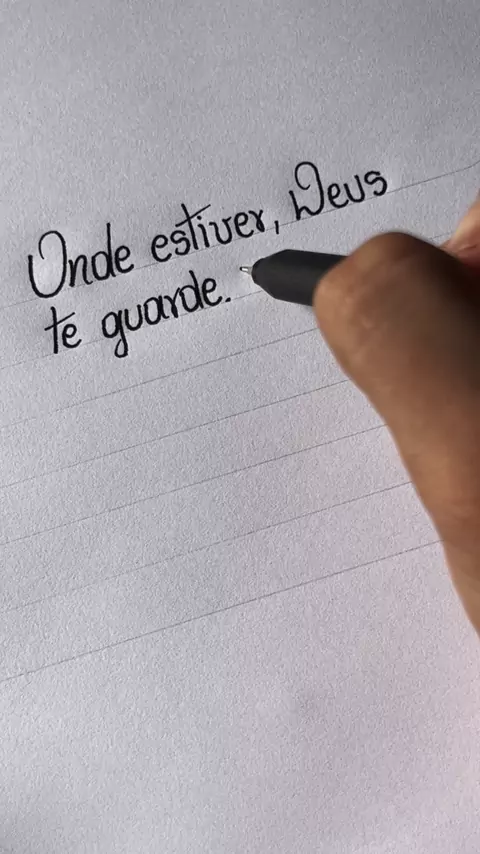 Onde estiver, Deus
te guarde.